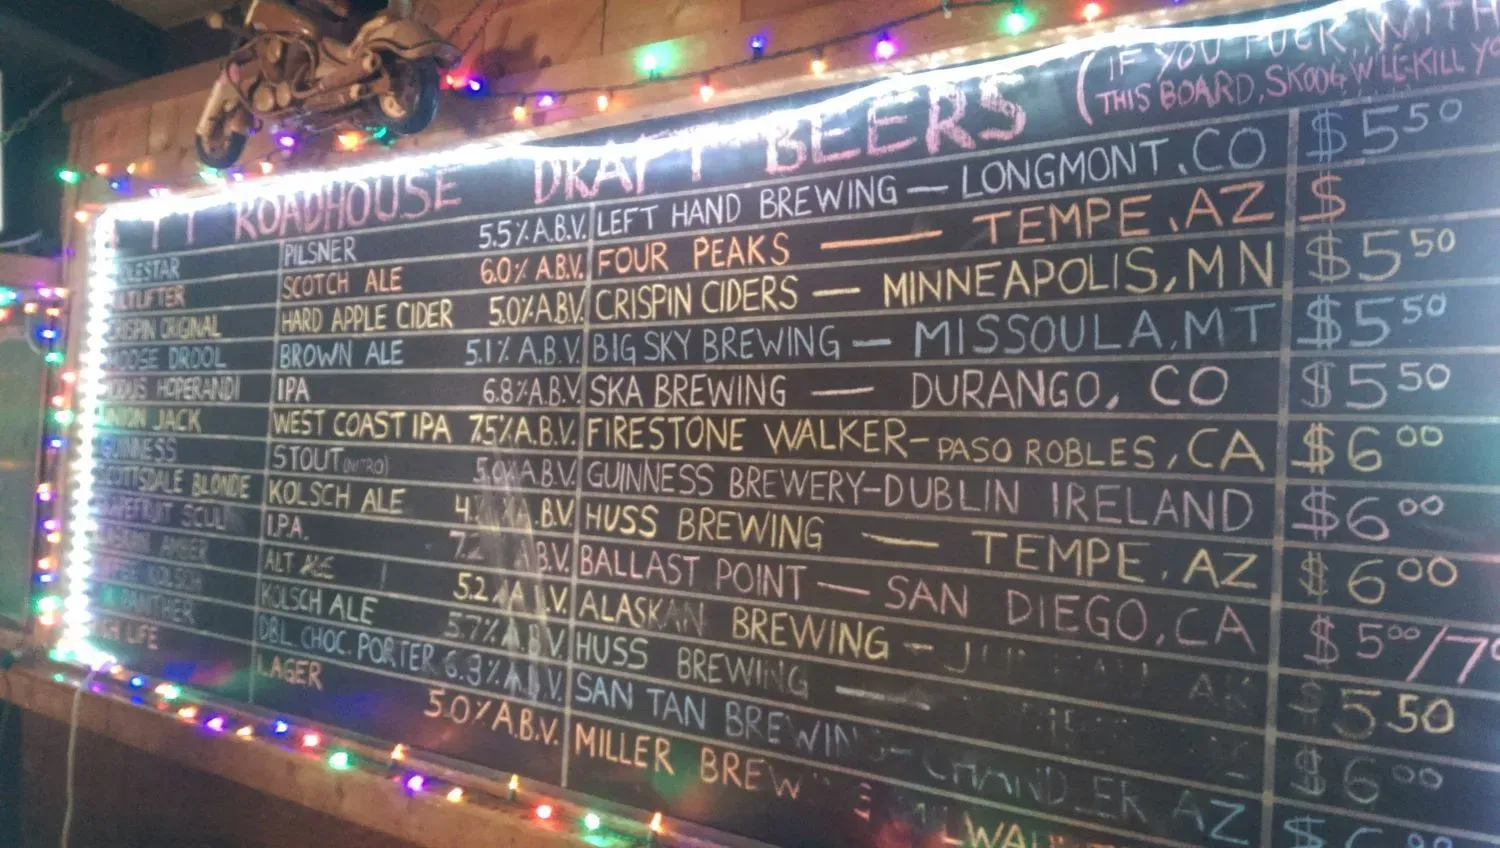 TT ROADHOUSE DRAFT BEERS (IF YOU FUCK WITH
THIS BOARD, SKOOG WILL KILL YO
PILSNER 5.5% A.B.V. LEFT HAND BREWING — LONGMONT, CO $5 50
SCOTCH ALE 6.0% A.B.V. FOUR PEAKS — TEMPE, AZ $
CRISPIN ORIGINAL HARD APPLE CIDER 5.0% A.B.V. CRISPIN CIDERS — MINNEAPOLIS, MN $5 50
MOOSE DROOL BROWN ALE 5.1% A.B.V. BIG SKY BREWING — MISSOULA, MT $5 50
MODUS HOPERANDI IPA 6.8% A.B.V. SKA BREWING — DURANGO, CO $5 50
UNION JACK WEST COAST IPA 7.5% A.B.V. FIRESTONE WALKER - PASO ROBLES, CA $6 00
GUINNESS STOUT (NITRO) 5.0% A.B.V. GUINNESS BREWERY - DUBLIN IRELAND $6 00
SCOTTSDALE BLONDE KOLSCH ALE 4. A.B.V. HUSS BREWING — TEMPE, AZ $6 00
I.P.A. 7.2 A.B.V. BALLAST POINT — SAN DIEGO, CA $5 00/7
AMBER ALT ALE 5.2 A.B.V. ALASKAN BREWING - AK $5.50
KOLSCH KOLSCH ALE 5.7% A.B.V. HUSS BREWING — $6 00
PANTHER DBL. CHOC. PORTER 6.3% A.B.V. SAN TAN BREWING - CHANDLER AZ $
HIGH LIFE LAGER 5.0% A.B.V. MILLER BREW